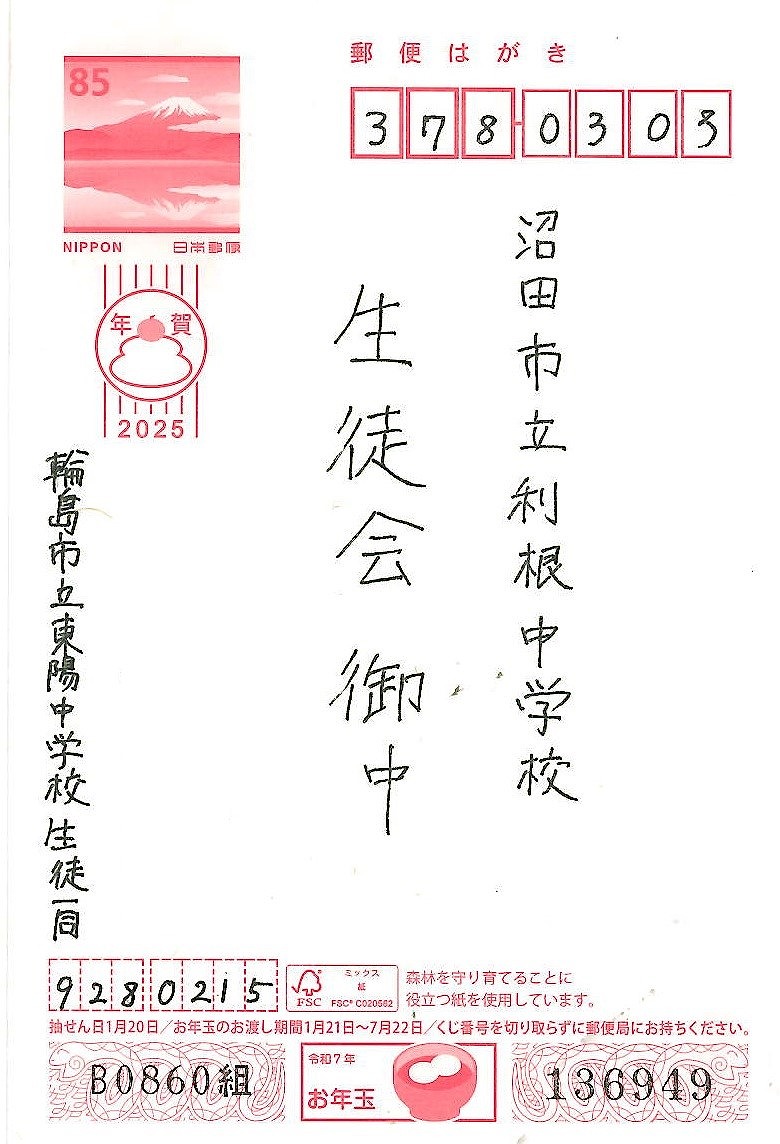 郵便はがき
85
NIPPON 日本郵便
378-0303
沼田市立利根中学校
生徒会 御中
年賀
2025
輪島市立東陽中学校 生徒一同
9280215
FSC
ミックス
紙
FSC® C020562
森林を守り育てることに
役立つ紙を使用しています。
抽せん日1月20日／お年玉のお渡し期間1月21日～7月22日／くじ番号を切り取らずに郵便局にお持ちください。
B0860組
令和7年
お年玉
136949